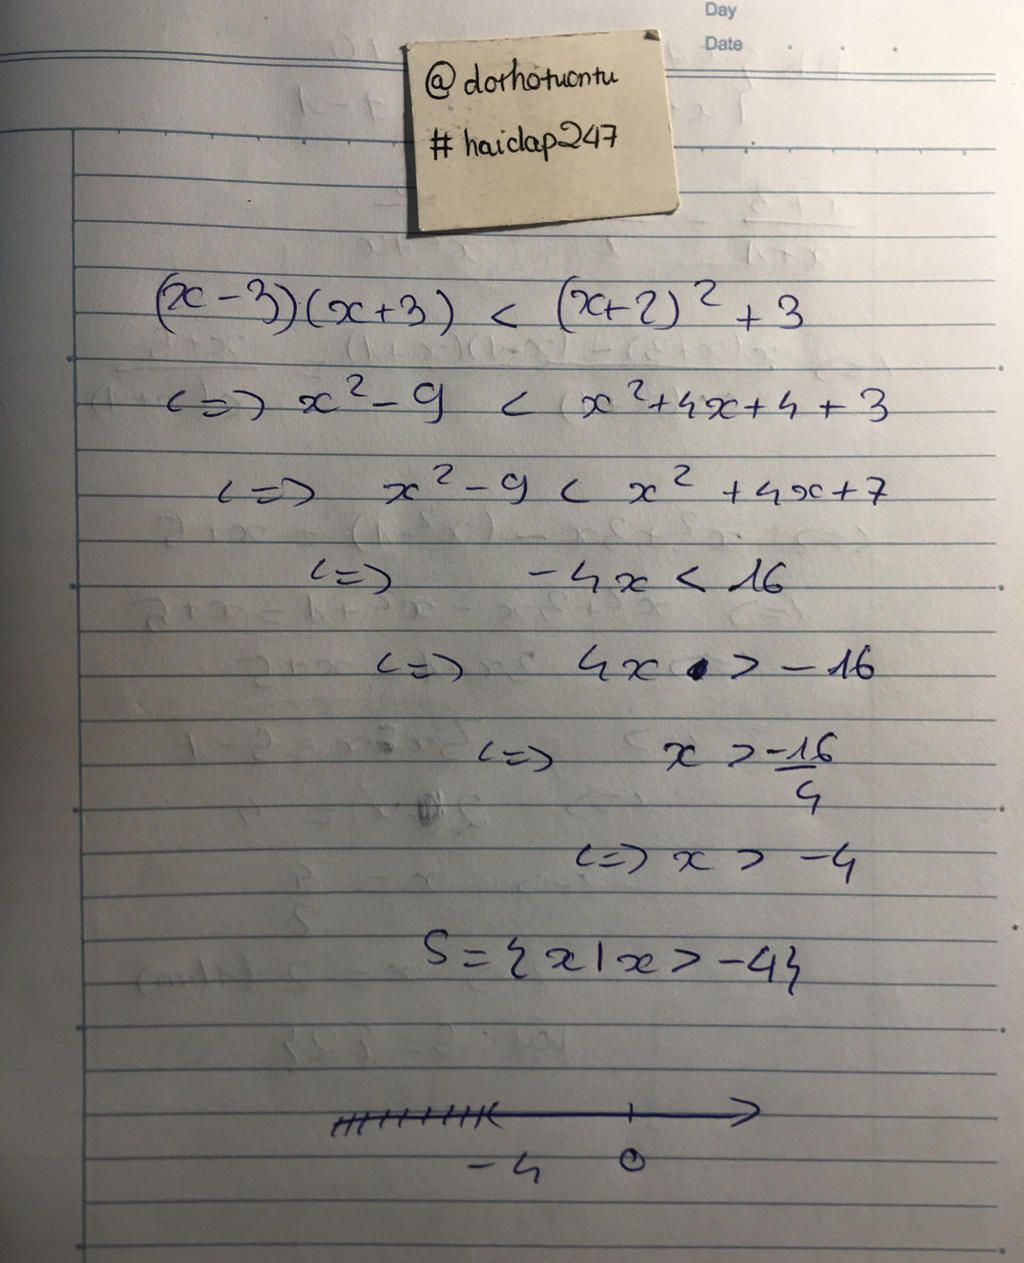 Day
Date
@ dorhotuontu
# haiclap247
(x-3)(x+3) < (x+2)² + 3
<=> x² - 9 < x² + 4x + 4 + 3
<=> x² - 9 < x² + 4x + 7
<=> -4x < 16
<=> 4x > -16
<=> x > -16/4
<=> x > -4
S = {x | x > -4}
-4 0